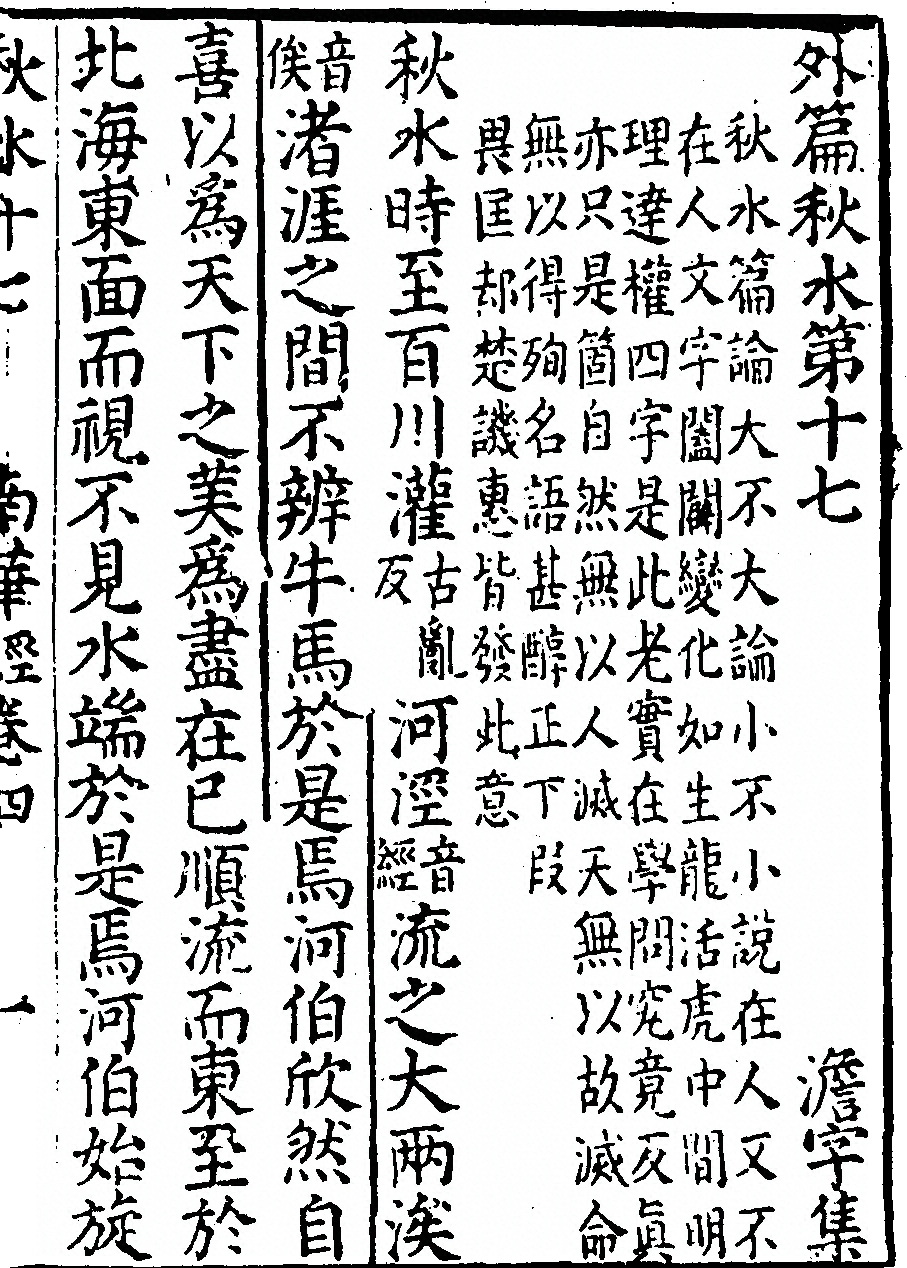 外篇秋水第十七 澹字集
秋水篇論大不大論小不小說在人又不
在人文字闔闢變化如生龍活虎中間明
理達權四字是此老實在學問究竟反眞
亦只是箇自然無以人滅天無以故滅命
無以得殉名語甚醇正下段
畏匡却楚譏惠皆發此意
秋水時至百川灌古亂反河涇音經流之大兩涘
音俟渚涯之間不辨牛馬於是焉河伯欣然自
喜以爲天下之美爲盡在已順流而東至於
北海東面而視不見水端於是焉河伯始旋
秋水十七 南華經卷四 一